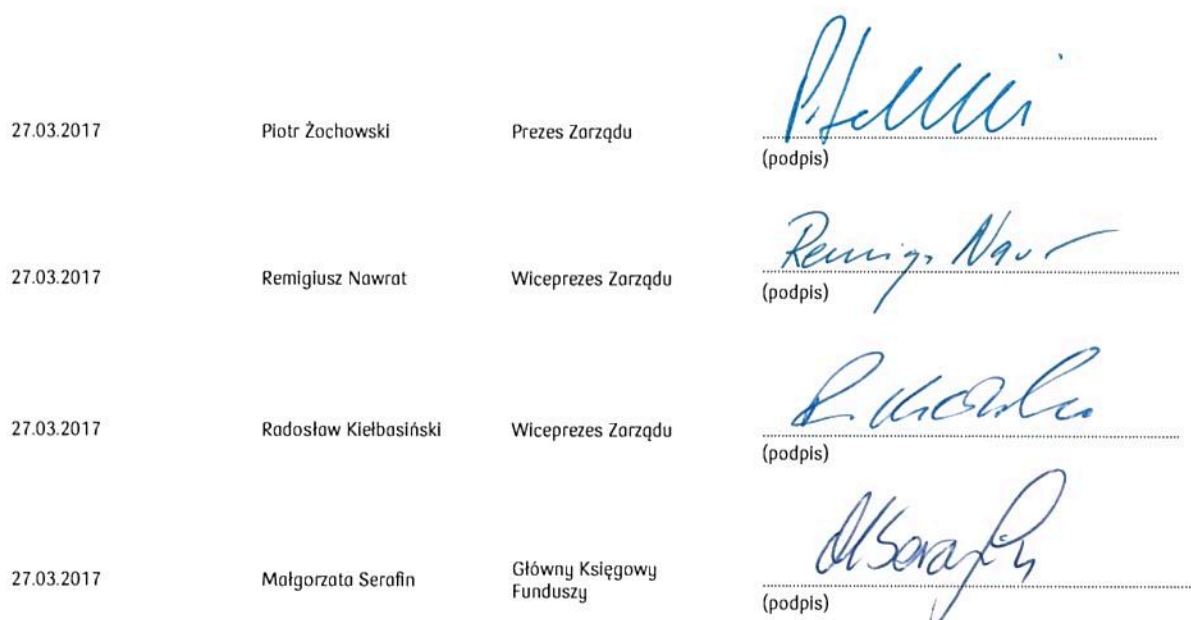 27.03.2017 Piotr Żochowski Prezes Zarządu
(podpis)
Remig. Nawr
27.03.2017 Remigiusz Nawrat Wiceprezes Zarządu
(podpis)
27.03.2017 Radosław Kiełbasiński Wiceprezes Zarządu
(podpis)
MSerafin
27.03.2017 Małgorzata Serafin Główny Księgowy
Funduszy
(podpis)